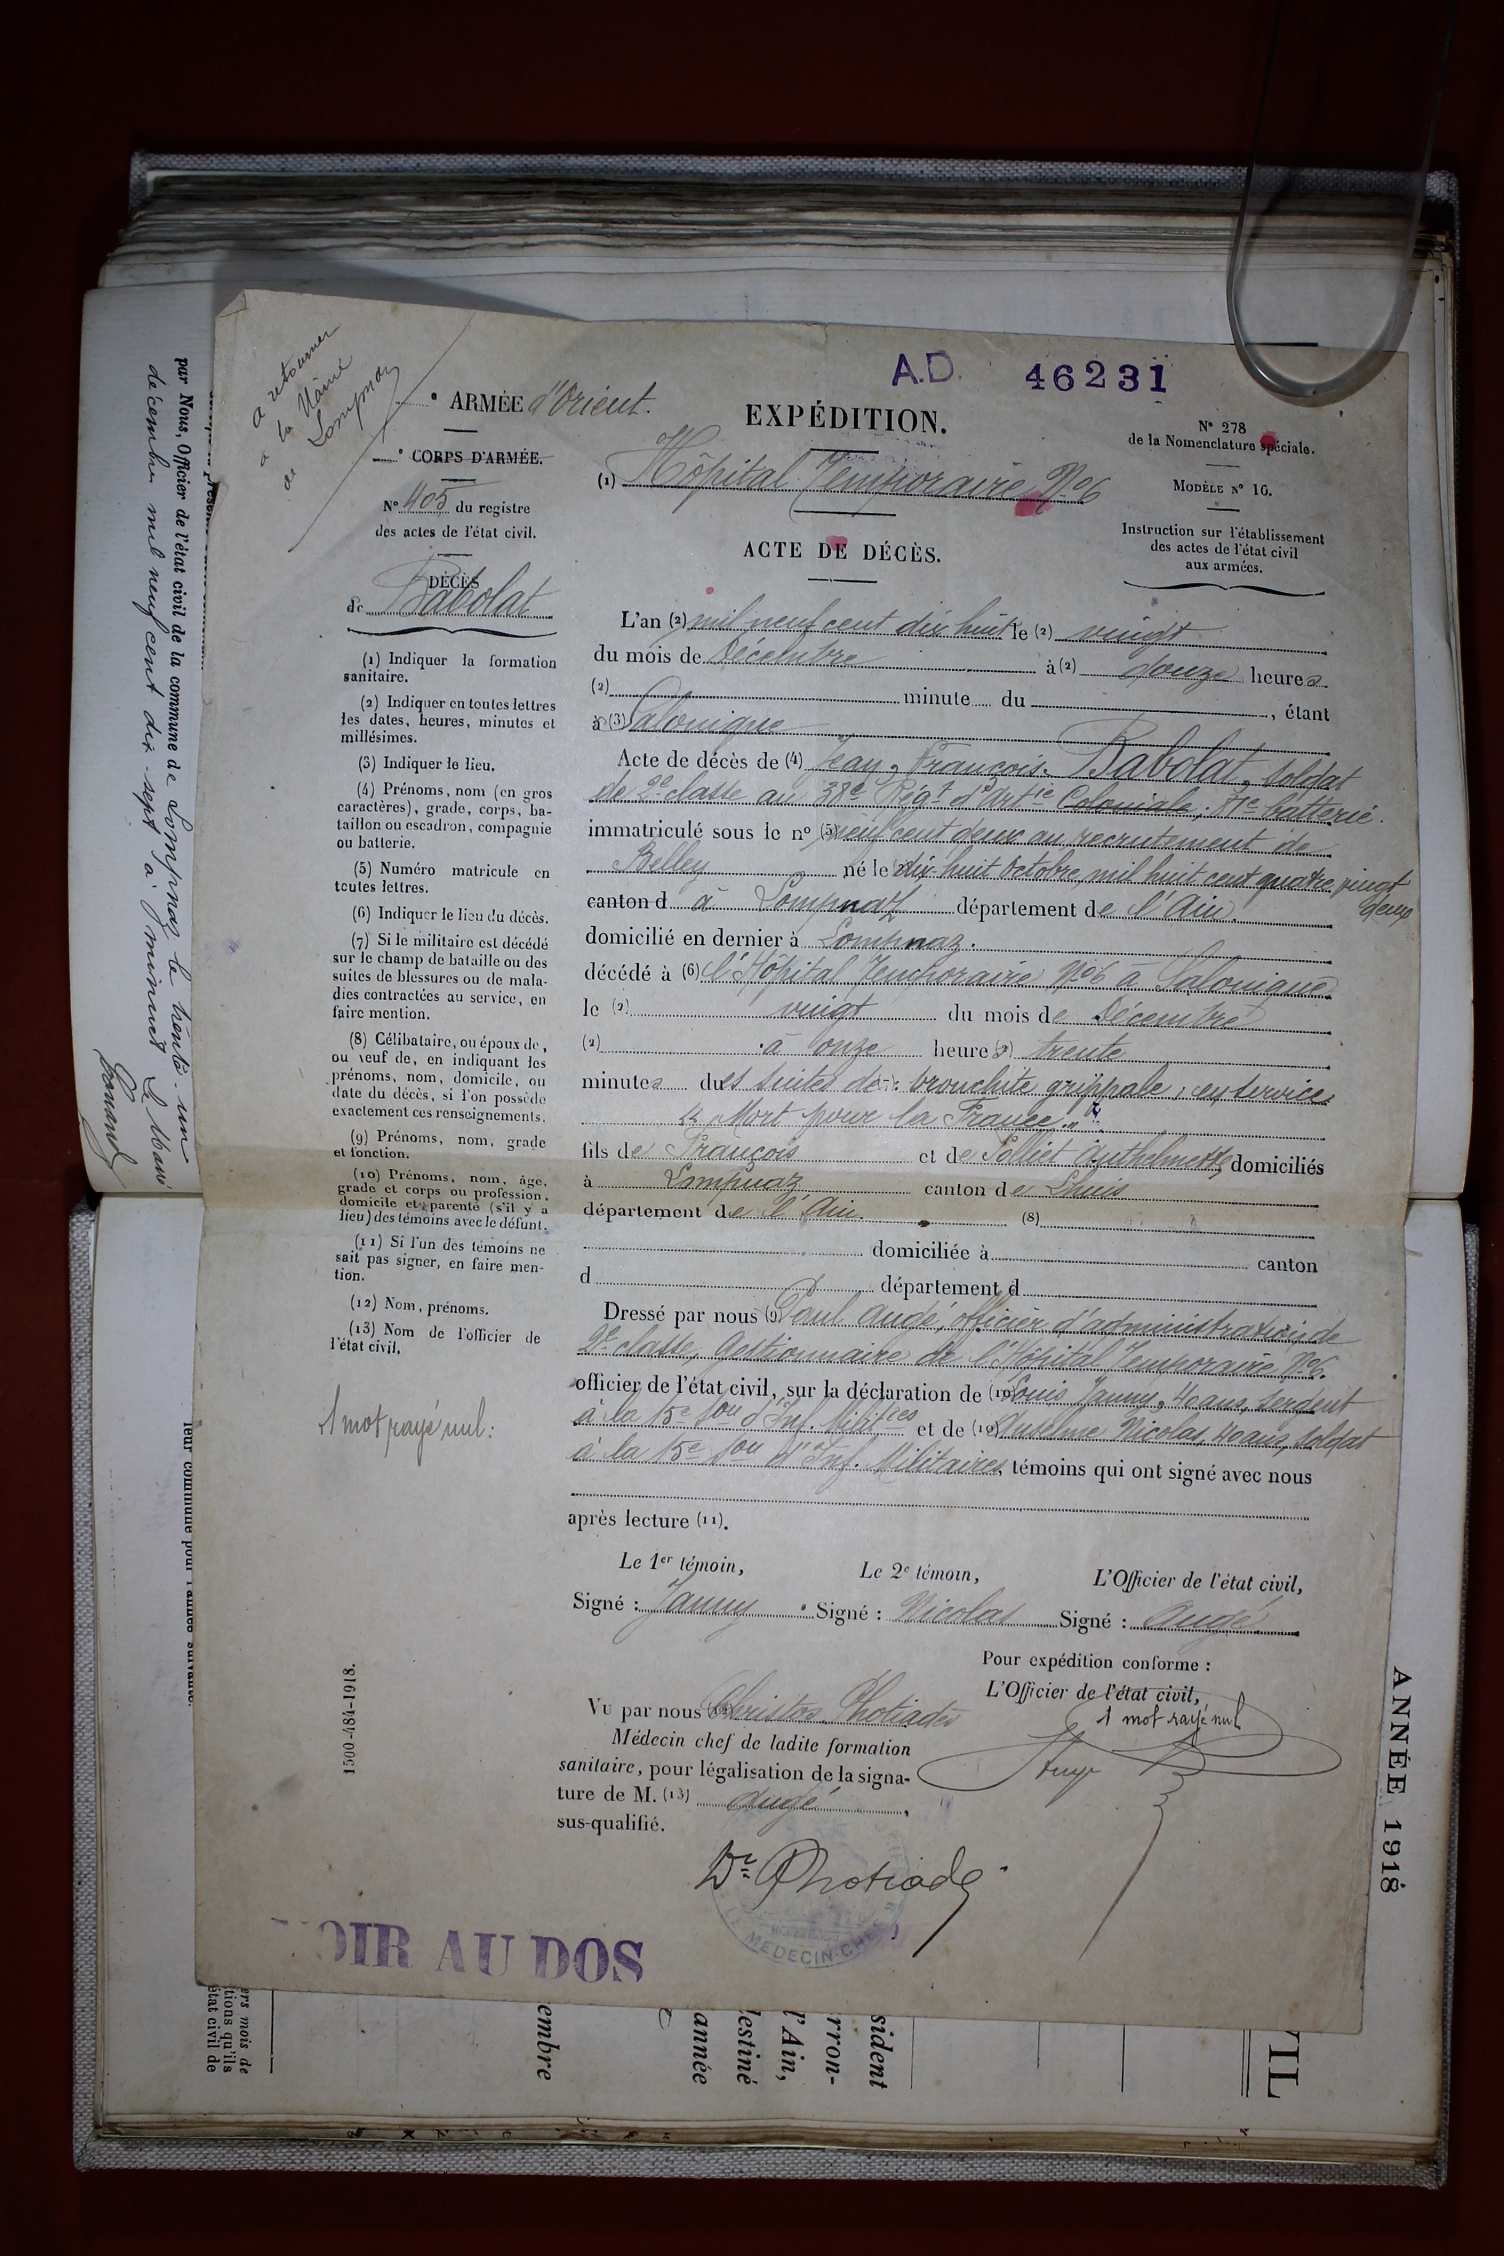 A.D. 46231
à retourner
à la Mairie
de Lompnaz
° ARMÉE d'Orient.
° CORPS D'ARMÉE.
N° 405 du registre
des actes de l'état civil.
DÉCÈS
de Rabolat
EXPÉDITION.
(1) Hôpital Temporaire N° 6
ACTE DE DÉCÈS.
N° 278
de la Nomenclature spéciale.
MODÈLE N° 16.
Instruction sur l'établissement
des actes de l'état civil
aux armées.
(1) Indiquer la formation
sanitaire.
(2) Indiquer en toutes lettres
les dates, heures, minutes et
millésimes.
(3) Indiquer le lieu.
(4) Prénoms, nom (en gros
caractères), grade, corps, ba-
taillon ou escadron, compagnie
ou batterie.
(5) Numéro matricule en
toutes lettres.
(6) Indiquer le lieu du décès.
(7) Si le militaire est décédé
sur le champ de bataille ou des
suites de blessures ou de mala-
dies contractées au service, en
faire mention.
(8) Célibataire, ou époux de,
ou veuf de, en indiquant les
prénoms, nom, domicile, ou
date du décès, si l'on possède
exactement ces renseignements.
(9) Prénoms, nom, grade
et fonction.
(10) Prénoms, nom, âge,
grade et corps ou profession,
domicile et parenté (s'il y a
lieu) des témoins avec le défunt.
(11) Si l'un des témoins ne
sait pas signer, en faire men-
tion.
(12) Nom, prénoms.
(13) Nom de l'officier de
l'état civil.
1 mot rayé nul:
1500-484-1918.
L'an (2) mil neuf cent dix huit le (2) vingt
du mois de Décembre à (2) douze heures
(2) minute du , étant
à (3) Salonique
Acte de décès de (4) Jean, François. Rabolat, soldat
de 2e classe au 38e Régt d'Artie Coloniale, 31e batterie.
immatriculé sous le n° (5) neuf cent deux au recrutement de
Belley né le dix-huit Octobre, mil huit cent quatre vingt
deux
canton d à Lompnaz département de l'Ain.
domicilié en dernier à Lompnaz.
décédé à (6) l'Hôpital Temporaire N° 6 à Salonique
le (2) vingt du mois de Décembre
(2) à onze heures (2) trente
minutes des suites de (7): bronchite grippale, en service
"Mort pour la France"
fils de François et de Solliet Anthelmette, domiciliés
à Lompnaz canton de Lhuis
département de l'Ain. (8)
domiciliée à canton
d département d
Dressé par nous (9) Paul Augé, officier d'administration de
2e classe, Gestionnaire de l'Hôpital Temporaire N° 6.
officier de l'état civil, sur la déclaration de (10) Louis Janny, 40 ans, sergent
à la 15e Son d'Inf. Militres et de (10) Anselme Nicolas, 40 ans, soldat
à la 15e Son d'Inf. Militaires, témoins qui ont signé avec nous
après lecture (11).
Le 1er témoin, Le 2e témoin, L'Officier de l'état civil,
Signé : Janny Signé : Nicolas Signé : Augé
Pour expédition conforme :
L'Officier de l'état civil,
1 mot rayé nul
Augé
Vu par nous (12) Christos Photiadès
Médecin chef de ladite formation
sanitaire, pour légalisation de la signa-
ture de M. (13) Augé ,
sus-qualifié.
Dr Photiadès
LE MÉDECIN-CHEF
VOIR AU DOS
par Nous, Officier de l'état civil de la commune de Lompnaz le trente-un
décembre mil neuf cent dix-sept à minuit Le Maire
leur commune pour l'année suivante.
ers mois de
tions qu'ils
état civil de
embre
année
destiné
l'Ain,
rron-
sident
VIL
ANNÉE 1918